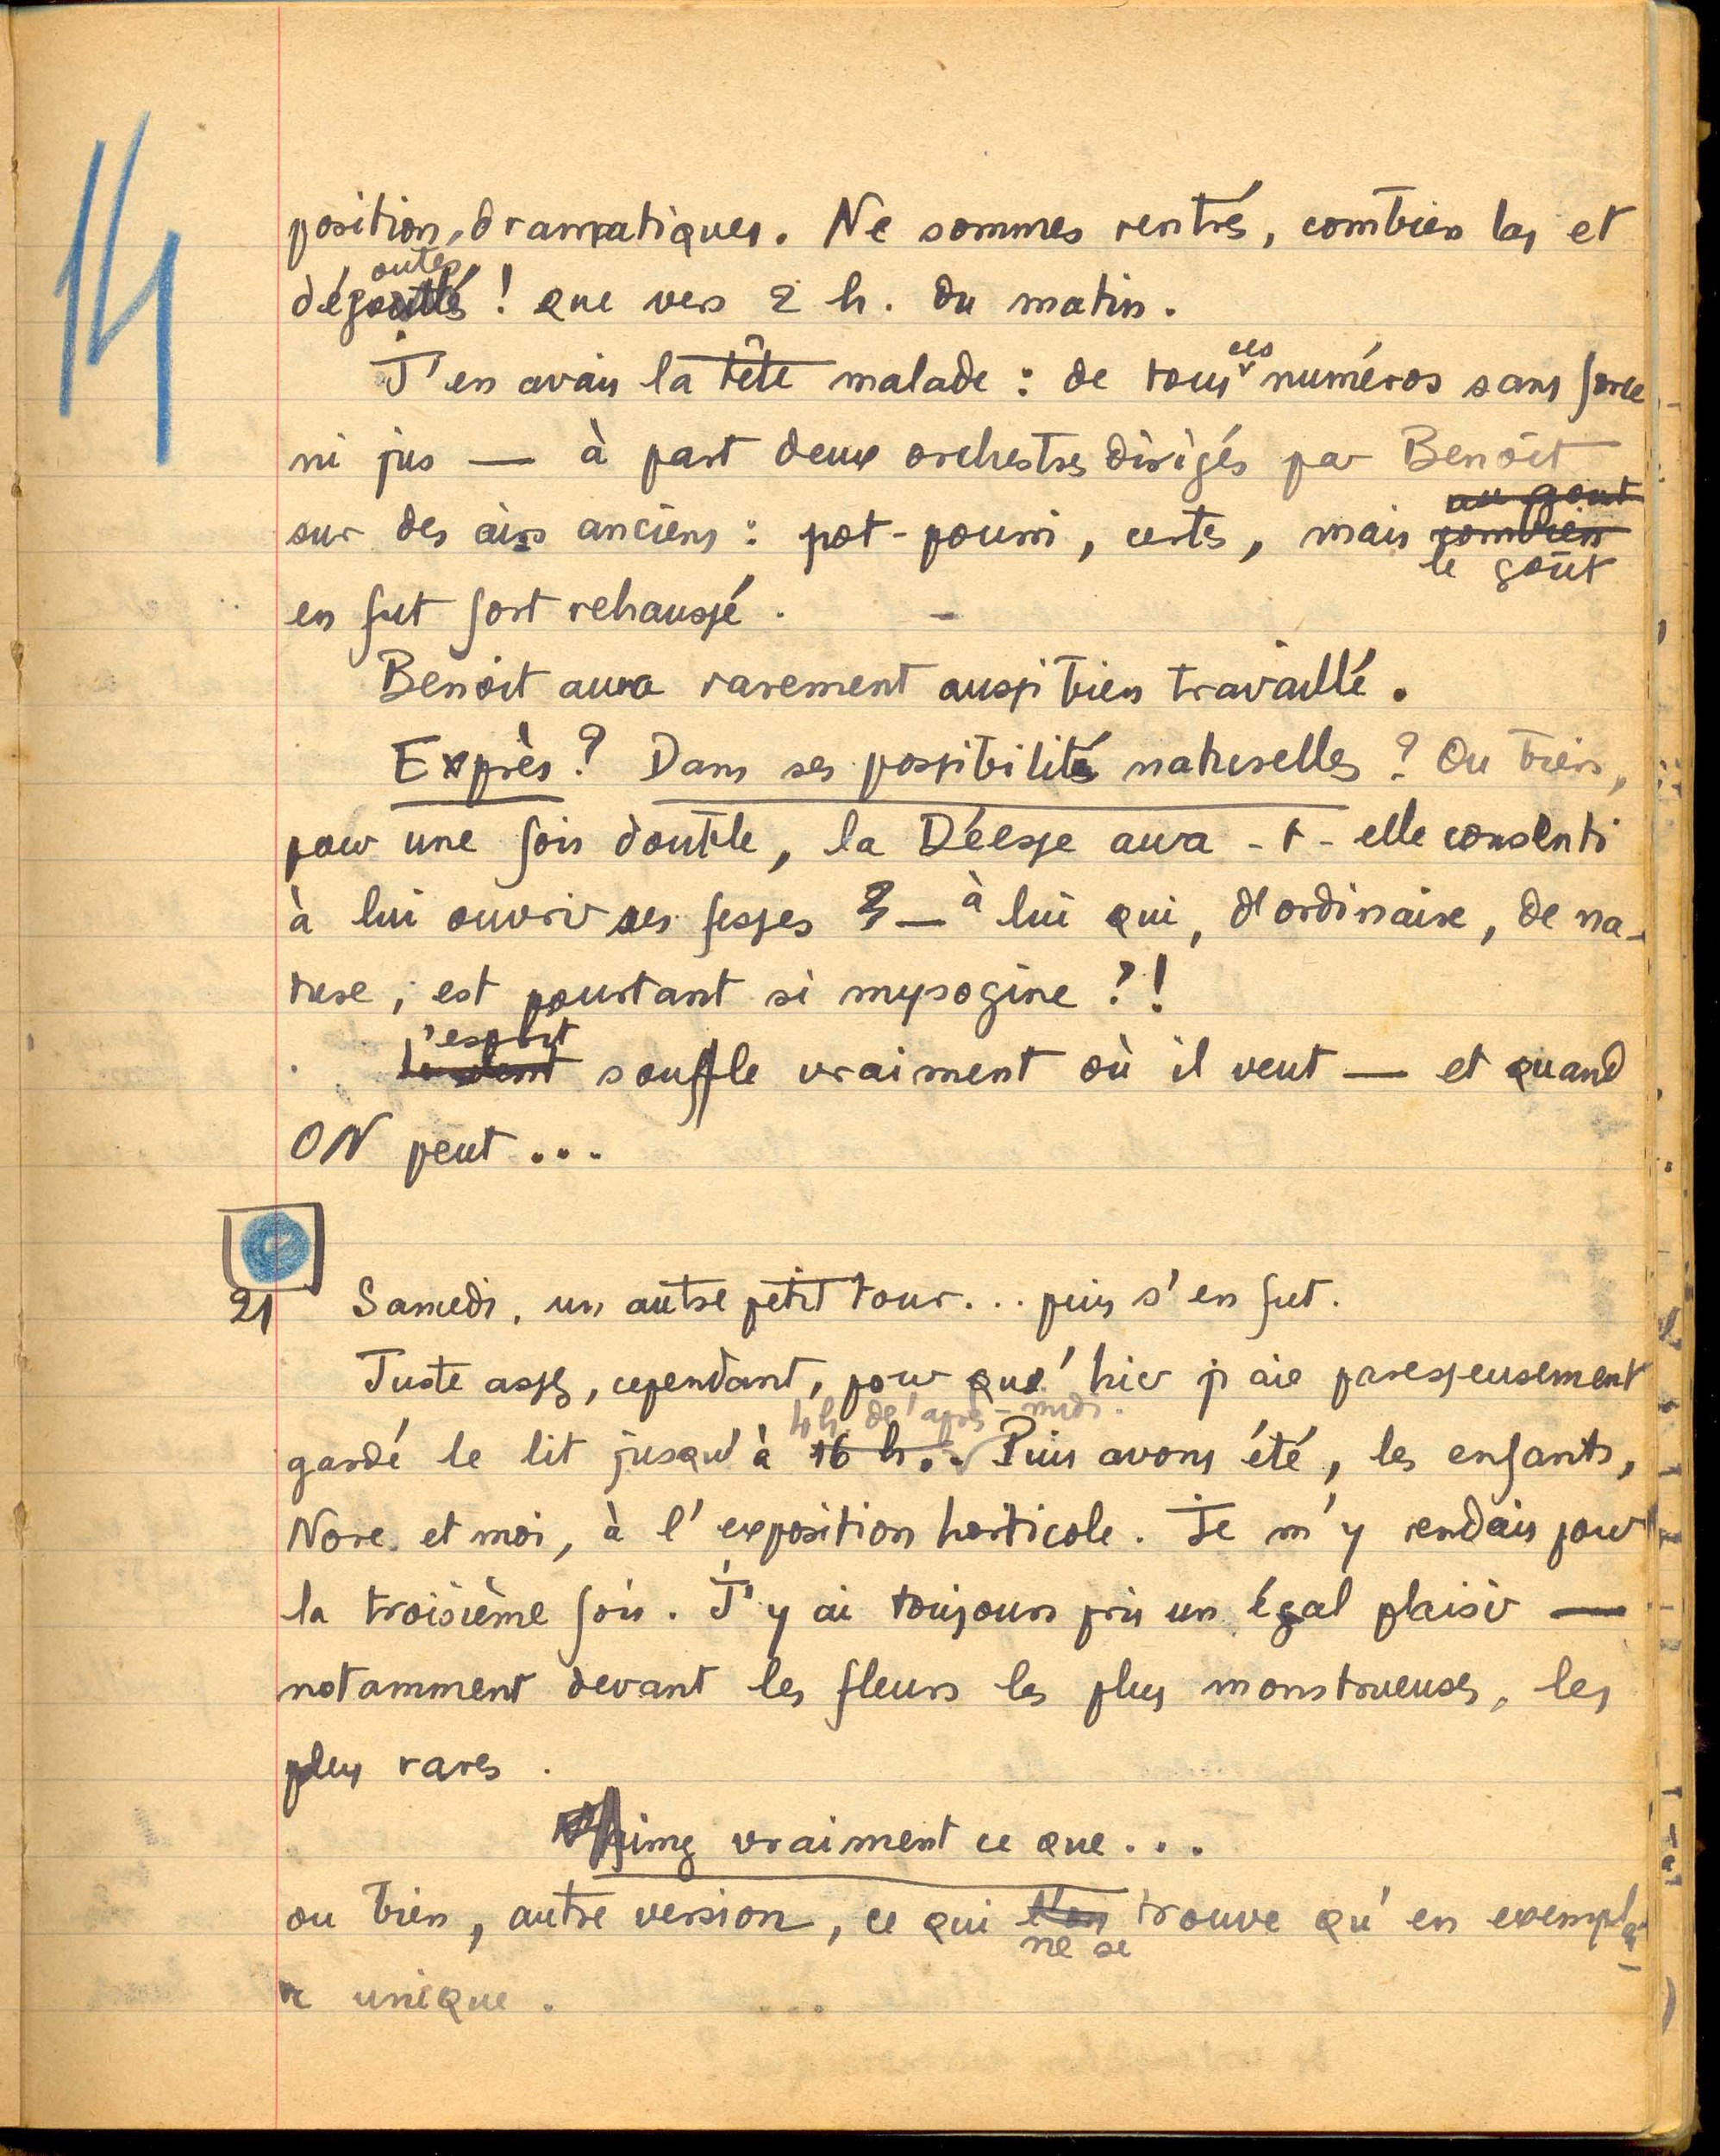 14
position, dramatiques. Ne sommes rentrés, combien las et
dégoutés ! que vers 2 h. du matin.
J'en avais la tête malade : de tous ces numéros sans force
ni jus — à part deux orchestres dirigés par Benoit
sur des airs anciens : pot-pourri, certes, mais au gout combien le goût
en fut fort rehaussé.
Benoit aura rarement aussi bien travaillé.
Exprès ? Dans ses possibilités naturelles ? Ou bien,
pour une fois double, la Déesse aura-t-elle consenti
à lui ouvrir ses fesses ? — à lui qui, d'ordinaire, de na-
ture, est pourtant si mysogine ?!
L'esprit souffle vraiment où il veut — et quand
ON peut...
21 Samedi, un autre petit tour... puis s'en fut.
Juste assez, cependant, pour que hier j'aie paresseusement
gardé le lit jusqu'à 16 h. 4 h de l'après-midi. Puis avons été, les enfants,
Nore et moi, à l'exposition horticole. Je m'y rendais pour
la troisième fois. J'y ai toujours pris un égal plaisir —
notamment devant les fleurs les plus monstrueuses, les
plus rares.
Aimez vraiment ce que...
ou bien, autre version, ce qui ne se trouve qu'en exemplai-
re unique.